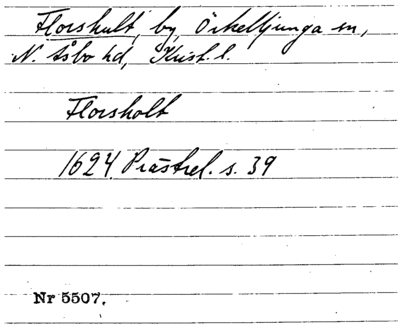 Florshult, by, Örkelljunga sn,
N. Åsbo hd, Krist. l.
Florsholt
1624 Prästrel. s. 39
Nr 5507.